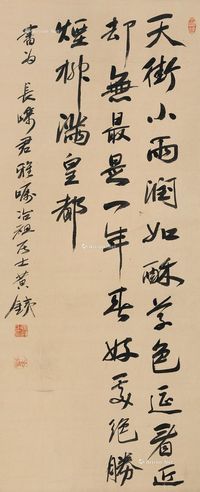 天街小雨潤如酥草色遥看近
却無最是一年春好處絕勝
煙柳滿皇都
書為 長嶸君雅囑冶祖居士黃鉞